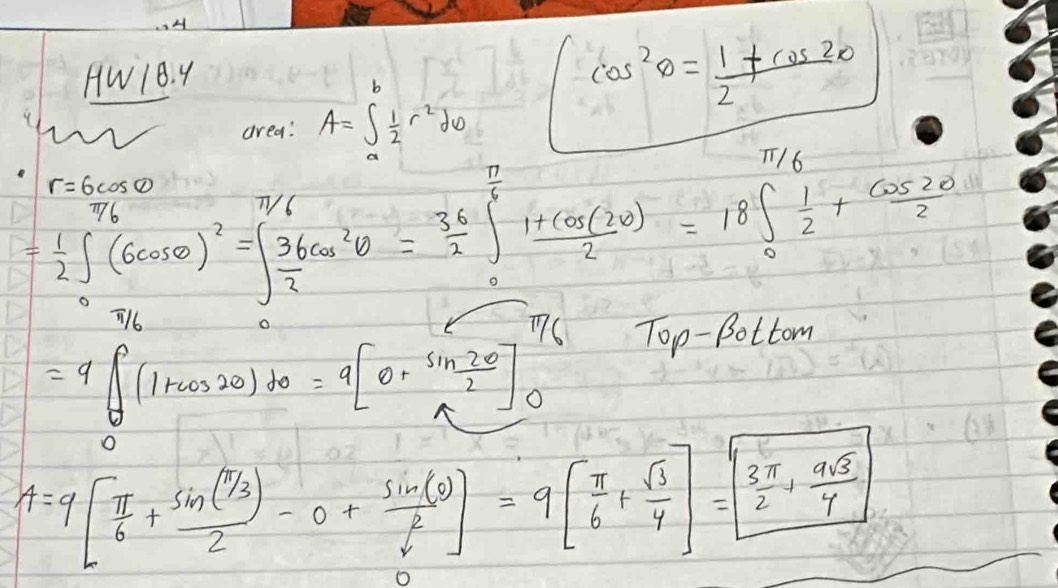 HW 18.4
cos²θ = (1 + cos 2θ)/2
area: A = ∫_a^b 1/2 r² dθ
• r = 6cosθ
= 1/2 ∫_0^{π/6} (6cosθ)² = ∫_0^{π/6} 36cos²θ/2 = 36/2 ∫_0^{π/6} (1+cos(2θ))/2 = 18 ∫_0^{π/6} 1/2 + cos2θ/2
= 9 ∫_0^{π/6} (1+cos2θ) dθ = 9[θ + sin2θ/2]_0^{π/6} Top-Bottom
A = 9[π/6 + sin(π/3)/2 - 0 + sin(0)/2 → 0] = 9[π/6 + √3/4] = 3π/2 + 9√3/4